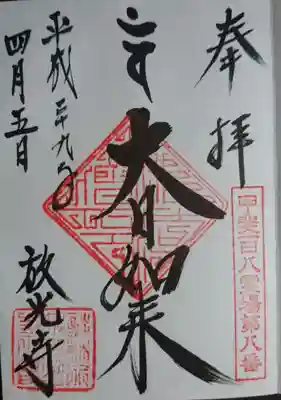 奉拝
甲斐百八霊場第八番
大日如来
平成二十九年
四月五日
放光寺